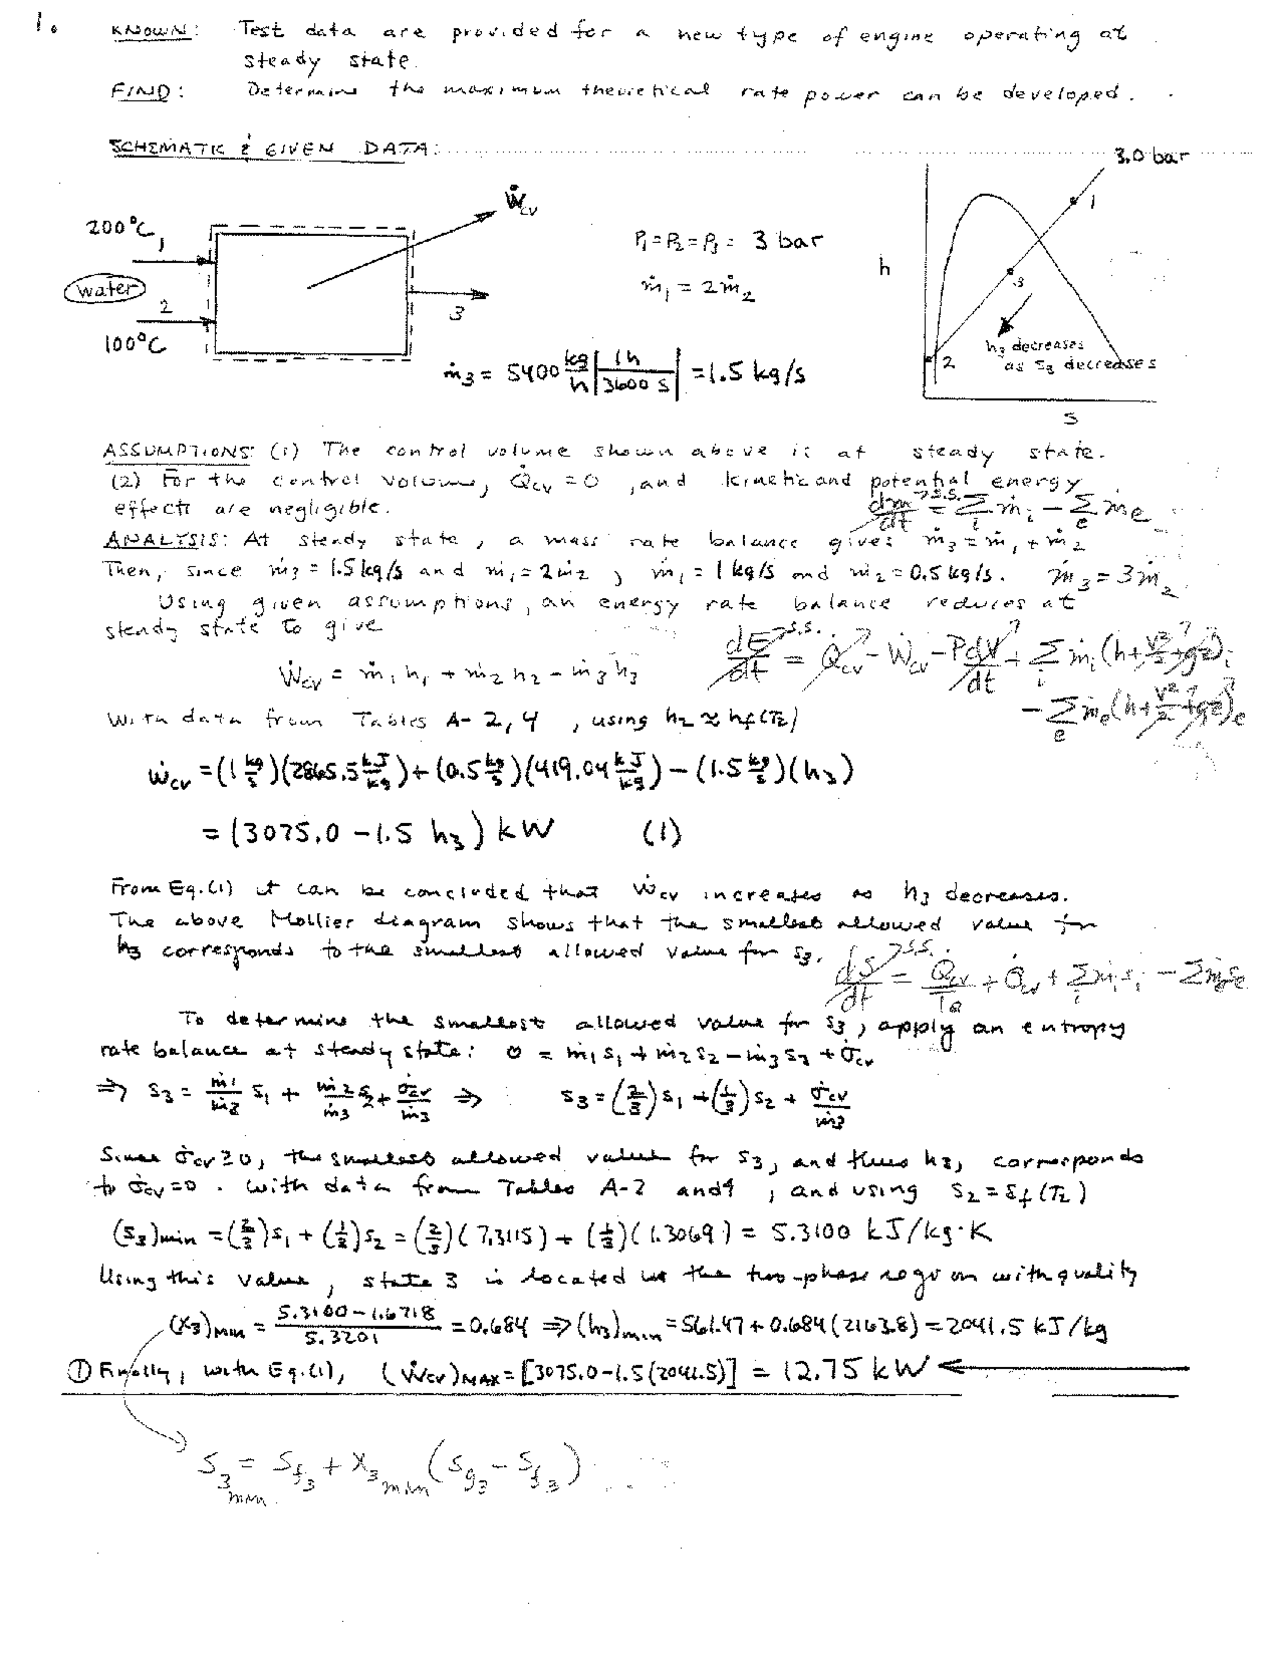 1.
KNOWN: Test data are provided for a new type of engine operating at
steady state.
FIND: Determine the maximum theoretical rate power can be developed.
SCHEMATIC & GIVEN DATA:
3.0 bar
Ẇcv
200°C
1
P₁=P₂=P₃= 3 bar
1
h
water
ṁ₁ = 2ṁ₂
3
2
3
100°C
h₃ decreases
as s₃ decreases
2
ṁ₃ = 5400 kg/h | 1h / 3600 s | = 1.5 kg/s
s
ASSUMPTIONS: (1) The control volume shown above is at steady state.
(2) For the control volume, Q̇cv = 0, and kinetic and potential energy
effects are negligible.
dm/dt →s.s. = Σᵢ ṁᵢ - Σₑ ṁₑ
ANALYSIS: At steady state, a mass rate balance gives ṁ₃ = ṁ₁ + ṁ₂
Then, since ṁ₃ = 1.5 kg/s and ṁ₁ = 2ṁ₂, ṁ₁ = 1 kg/s and ṁ₂ = 0.5 kg/s. ṁ₃ = 3ṁ₂
Using given assumptions, an energy rate balance reduces at
steady state to give
dE/dt →s.s. = Q̇cv - Ẇcv - PdV/dt + Σᵢ ṁᵢ(h + V²/2 + gz)ᵢ
- Σₑ ṁₑ(h + V²/2 + gz)ₑ
Ẇcv = ṁ₁h₁ + ṁ₂h₂ - ṁ₃h₃
With data from Tables A-2,4, using h₂ ≈ hf(T₂)
Ẇcv = (1 kg/s)(2865.5 kJ/kg) + (0.5 kg/s)(419.04 kJ/kg) - (1.5 kg/s)(h₃)
= (3075.0 - 1.5 h₃) kW (1)
From Eq.(1) it can be concluded that Ẇcv increases as h₃ decreases.
The above Mollier diagram shows that the smallest allowed value for
h₃ corresponds to the smallest allowed value for s₃.
dS/dt →s.s. = Q̇cv/T + σ̇cv + Σᵢ ṁᵢsᵢ - Σ ṁₑsₑ
To determine the smallest allowed value for s₃, apply an entropy
rate balance at steady state: 0 = ṁ₁s₁ + ṁ₂s₂ - ṁ₃s₃ + σ̇cv
⇒ s₃ = ṁ₁/ṁ₃ s₁ + ṁ₂/ṁ₃ s₂ + σ̇cv/ṁ₃ ⇒ s₃ = (2/3)s₁ + (1/3)s₂ + σ̇cv/ṁ₃
Since σ̇cv ≥ 0, the smallest allowed value for s₃, and thus h₃, corresponds
to σ̇cv = 0. With data from Tables A-2 and 4, and using s₂ = sf(T₂)
(s₃)min = (2/3)s₁ + (1/3)s₂ = (2/3)(7.3115) + (1/3)(1.3069) = 5.3100 kJ/kg·K
Using this value, state 3 is located in the two-phase region with quality
(x₃)min = 5.3100 - 1.6718 / 5.3201 = 0.684 ⇒ (h₃)min = 561.47 + 0.684(2163.8) = 2041.5 kJ/kg
① Finally, with Eq.(1), (Ẇcv)MAX = [3075.0 - 1.5(2041.5)] = 12.75 kW
S₃min = Sf₃ + X₃min (Sg₃ - Sf₃)